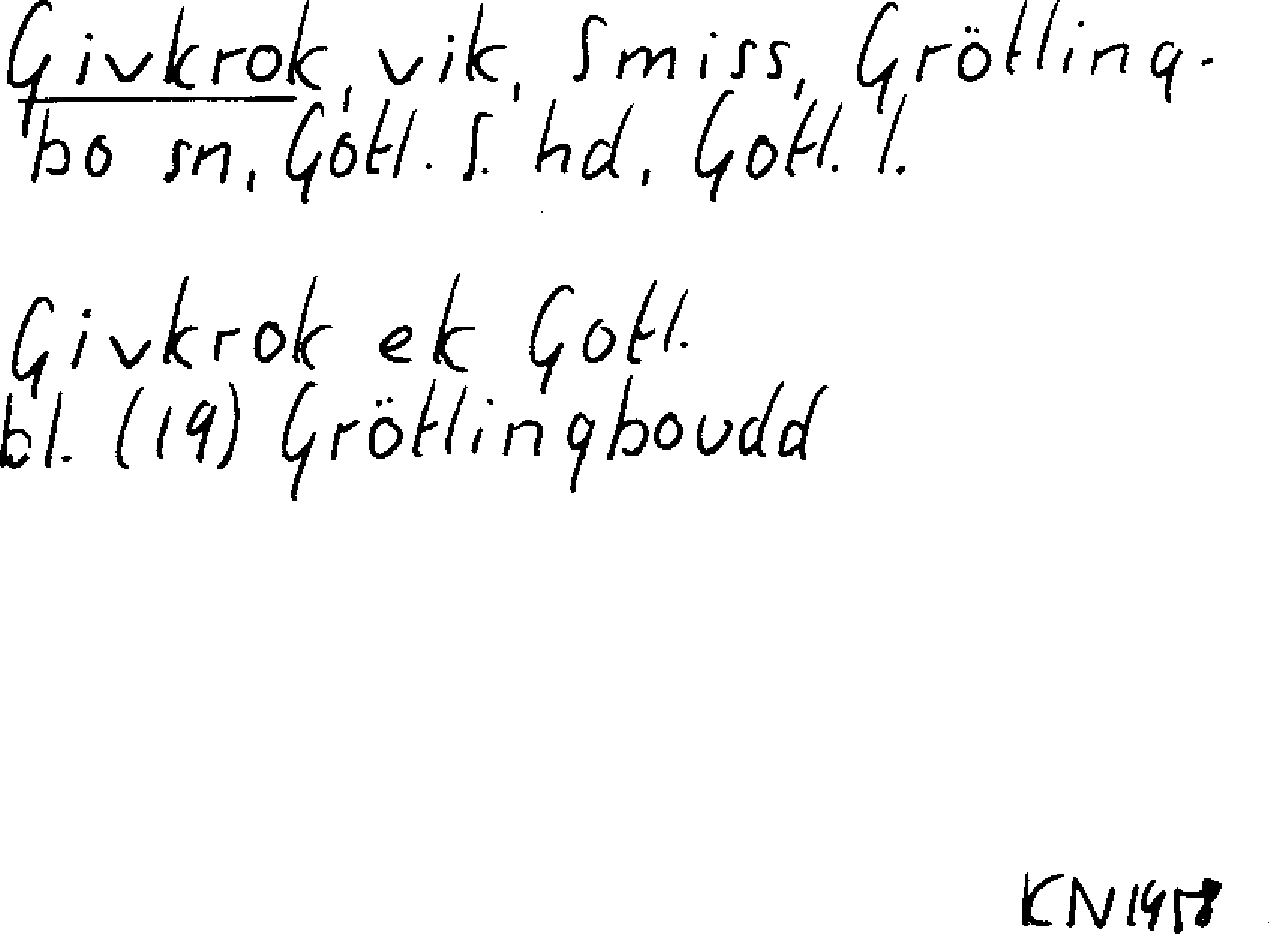 Givkrok, vik, Smiss, Grötling-
bo sn, Gotl. S. hd, Gotl. l.
Givkrok ek Gotl.
bl. (19) Grötlingboudd
KN 1958